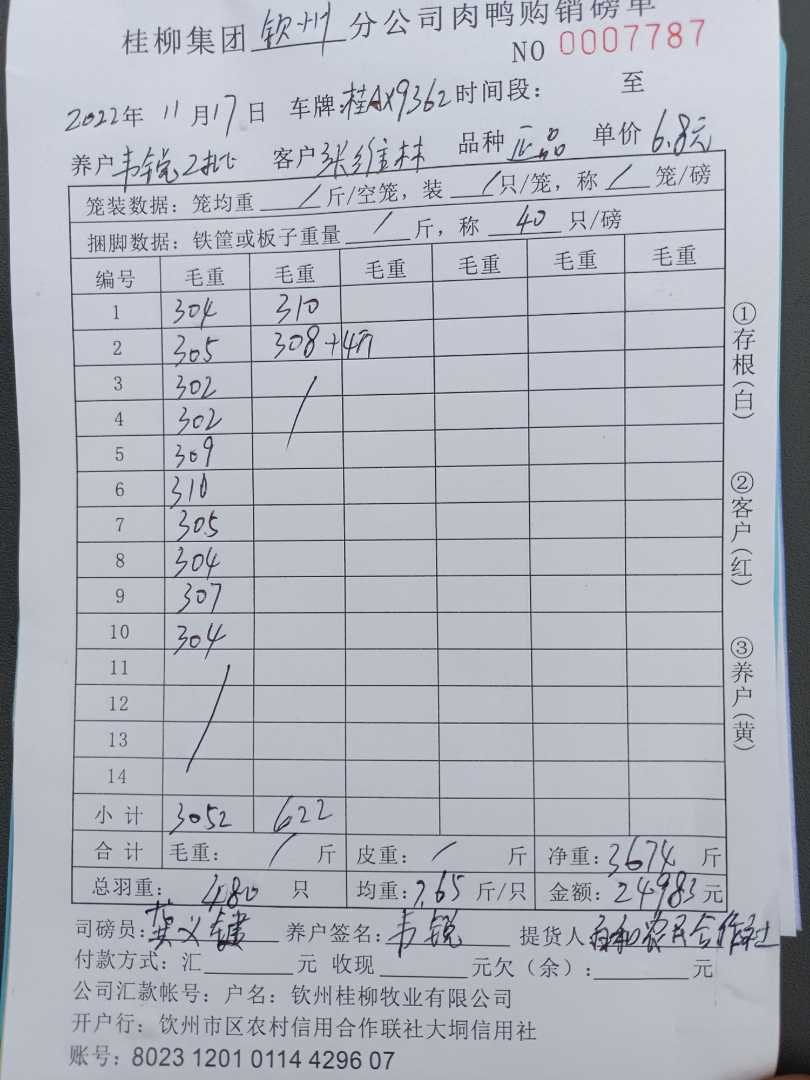 桂柳集团 钦州 分公司肉鸭购销磅单
NO 0007787
2022年 11月17日 车牌:桂AX9362 时间段: 至
养户 韦锐 客户 张维林 品种 正品 单价 6.8元
笼装数据:笼均重 / 斤/空笼,装 / 只/笼,称 / 笼/磅
捆脚数据:铁筐或板子重量 / 斤,称 40 只/磅
编号 毛重 毛重 毛重 毛重 毛重 毛重
1 304 310
2 305 308+4斤
3 302 /
4 302
5 309
6 310
7 305
8 304
9 307
10 304
11 /
12
13
14
小计 3052 622
合计 毛重: / 斤 皮重: / 斤 净重:3674 斤
总羽重: 480 只 均重:7.65 斤/只 金额:24983元
司磅员:龚义健 养户签名:韦锐 提货人 农民合作社
付款方式:汇 元 收现 元欠(余): 元
公司汇款帐号:户名:钦州桂柳牧业有限公司
开户行:饮州市区农村信用合作联社大垌信用社
账号:8023 1201 0114 4296 07
①存根(白)
②客户(红)
③养户(黄)